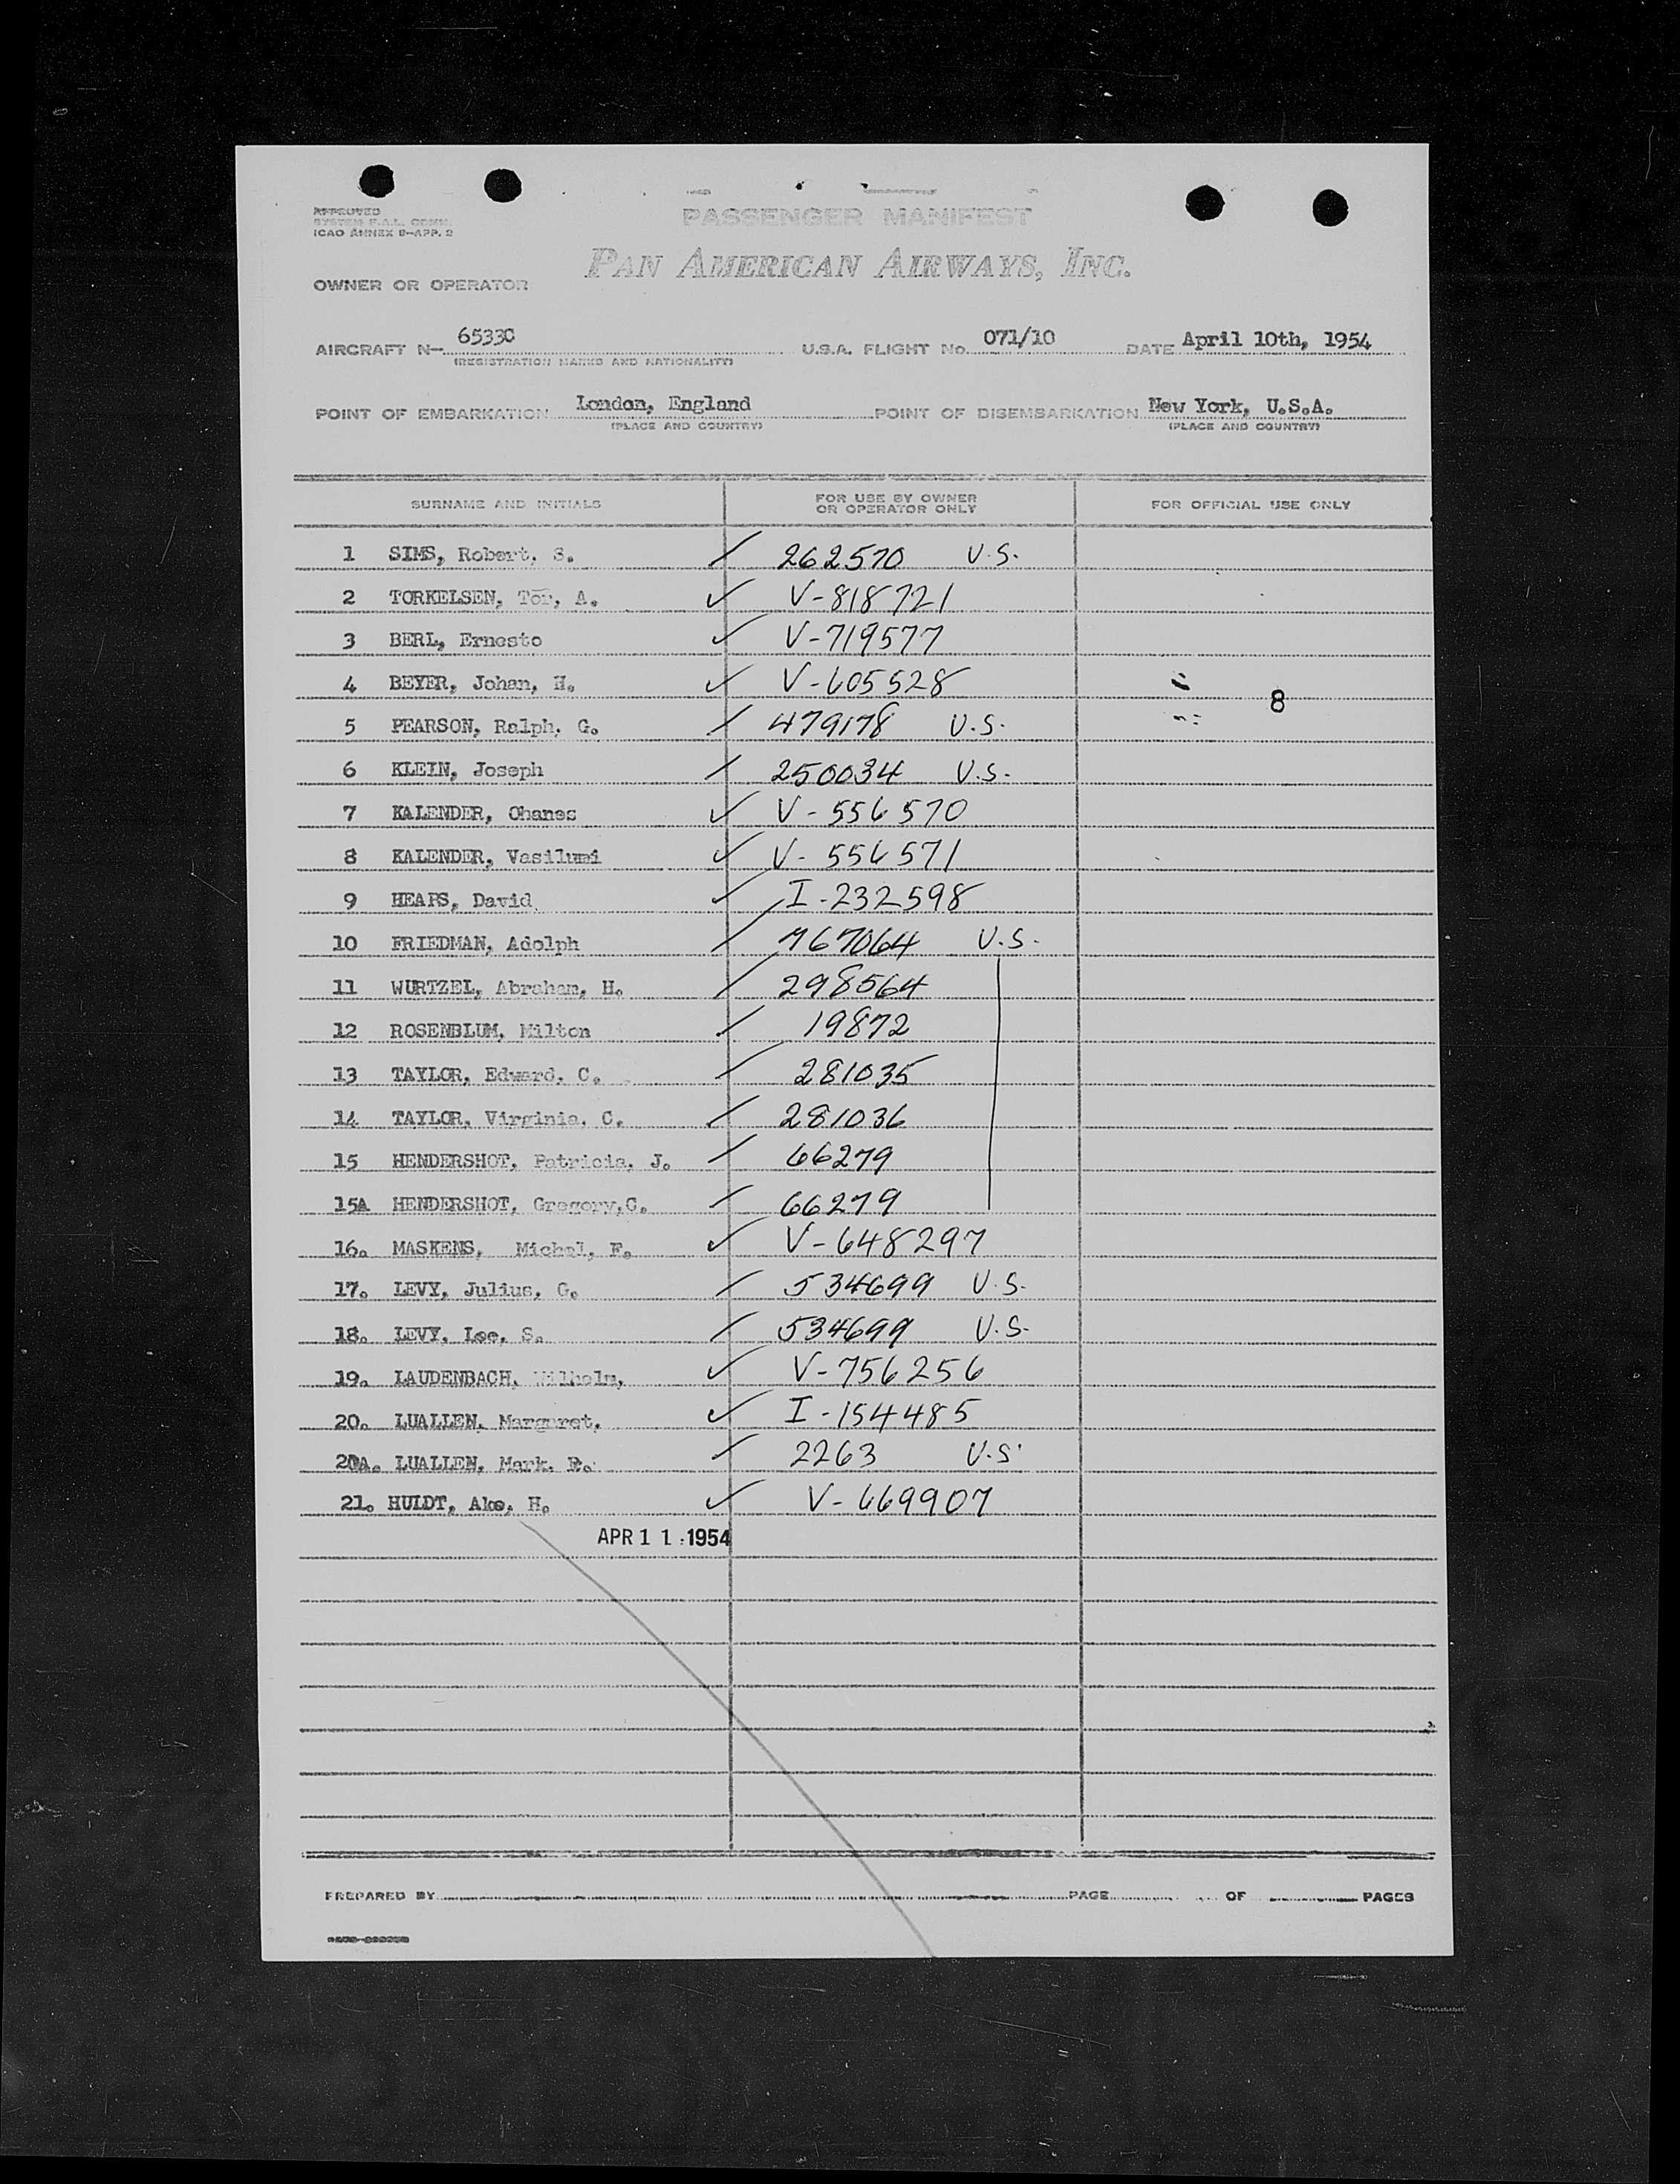 APPROVED
SYSTEM F.A.L. COMM.
ICAO ANNEX 9—APP. 2
PASSENGER MANIFEST
PAN AMERICAN AIRWAYS, INC.
OWNER OR OPERATOR
AIRCRAFT N— 6533C U.S.A. FLIGHT No. 071/10 DATE April 10th, 1954
(REGISTRATION MARKS AND NATIONALITY)
POINT OF EMBARKATION London, England POINT OF DISEMBARKATION New York, U.S.A.
(PLACE AND COUNTRY) (PLACE AND COUNTRY)
SURNAME AND INITIALS FOR USE BY OWNER OR OPERATOR ONLY FOR OFFICIAL USE ONLY
1 SIMS, Robert, S. 262570 U.S.
2 TORKELSEN, Tor, A. V-818721
3 BERL, Ernesto V-719577
4 BEYER, Johan, H. V-605528
8
5 PEARSON, Ralph, G. 479178 U.S.
6 KLEIN, Joseph 250034 U.S.
7 KALENDER, Ohanes V-556570
8 KALENDER, Vasilumi V-556571
9 HEARS, David I-232598
10 FRIEDMAN, Adolph 767064 U.S.
11 WURTZEL, Abraham, H. 298564
12 ROSENBLUM, Milton 19872
13 TAYLOR, Edward, C. 281035
14 TAYLOR, Virginia, C. 281036
15 HENDERSHOT, Patricia, J. 66279
15A HENDERSHOT, Gregory,C. 66279
16. MASKENS, Michel, F. V-648297
17. LEVY, Julius, G. 534699 U.S.
18. LEVY, Lee, S. 534699 U.S.
19. LAUDENBACH, Wilhelm, V-756256
20. LUALLEN, Margaret, I-154485
20A. LUALLEN, Mark, R. 2263 U.S.
21. HULDT, Ake, H. V-669907
APR 11 1954
PREPARED BY PAGE OF PAGES